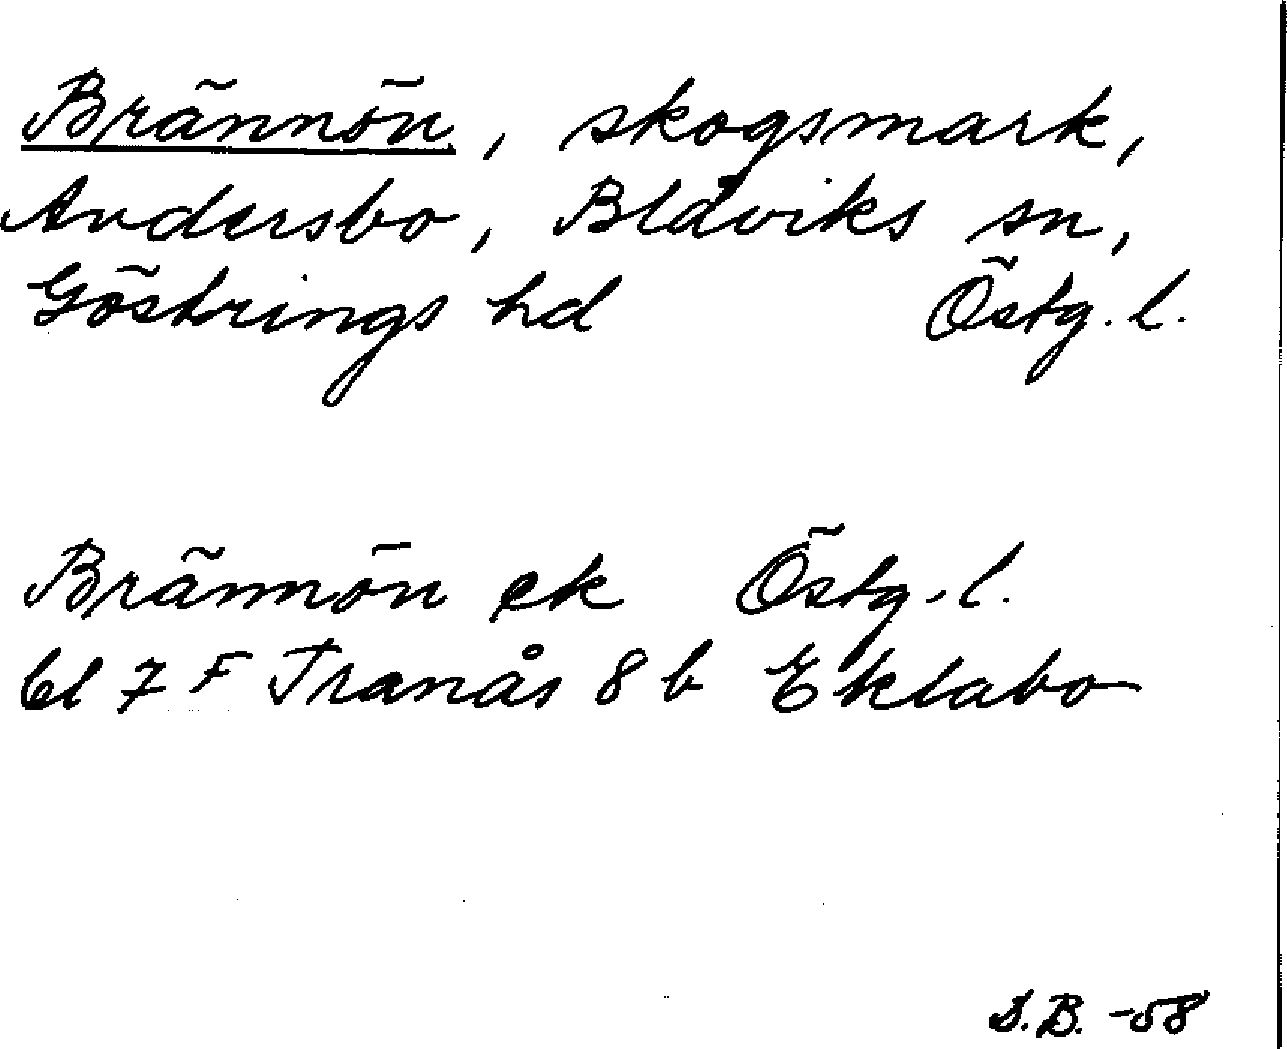 Brännön, skogsmark,
Andersbo, Blåviks sn,
Göstrings hd Östg. l.
Brännön ek Östg. l.
bl 7 F Tranås 8 b Eklabo
S.B. -58